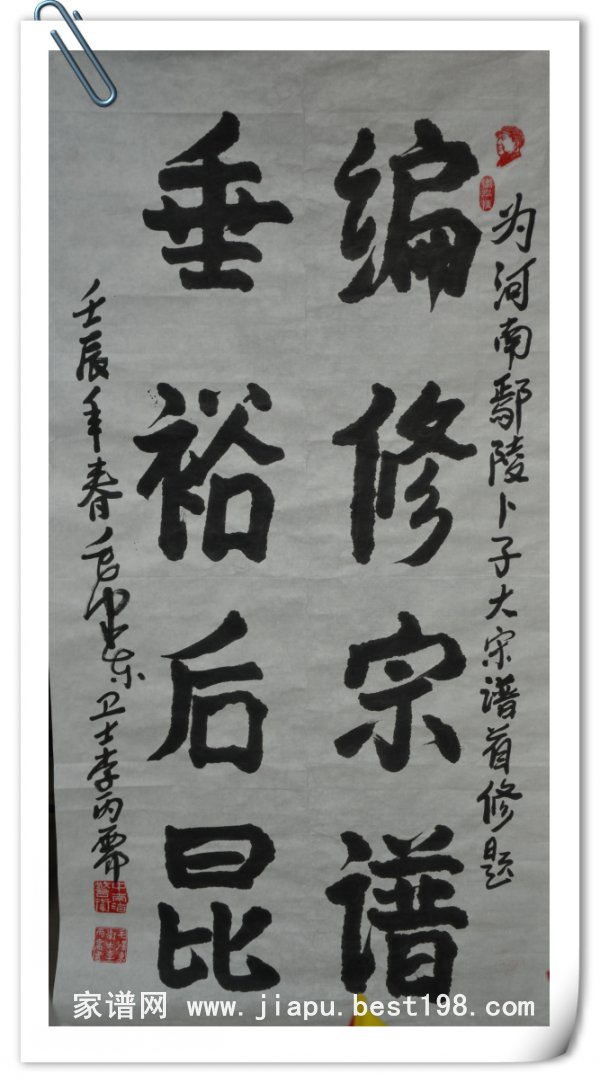 为河南鄢陵卜子大宗谱首修题
编修宗谱
垂裕后昆
壬辰年春毛泽东卫士李丙需
家谱网 www.jiapu.best198.com